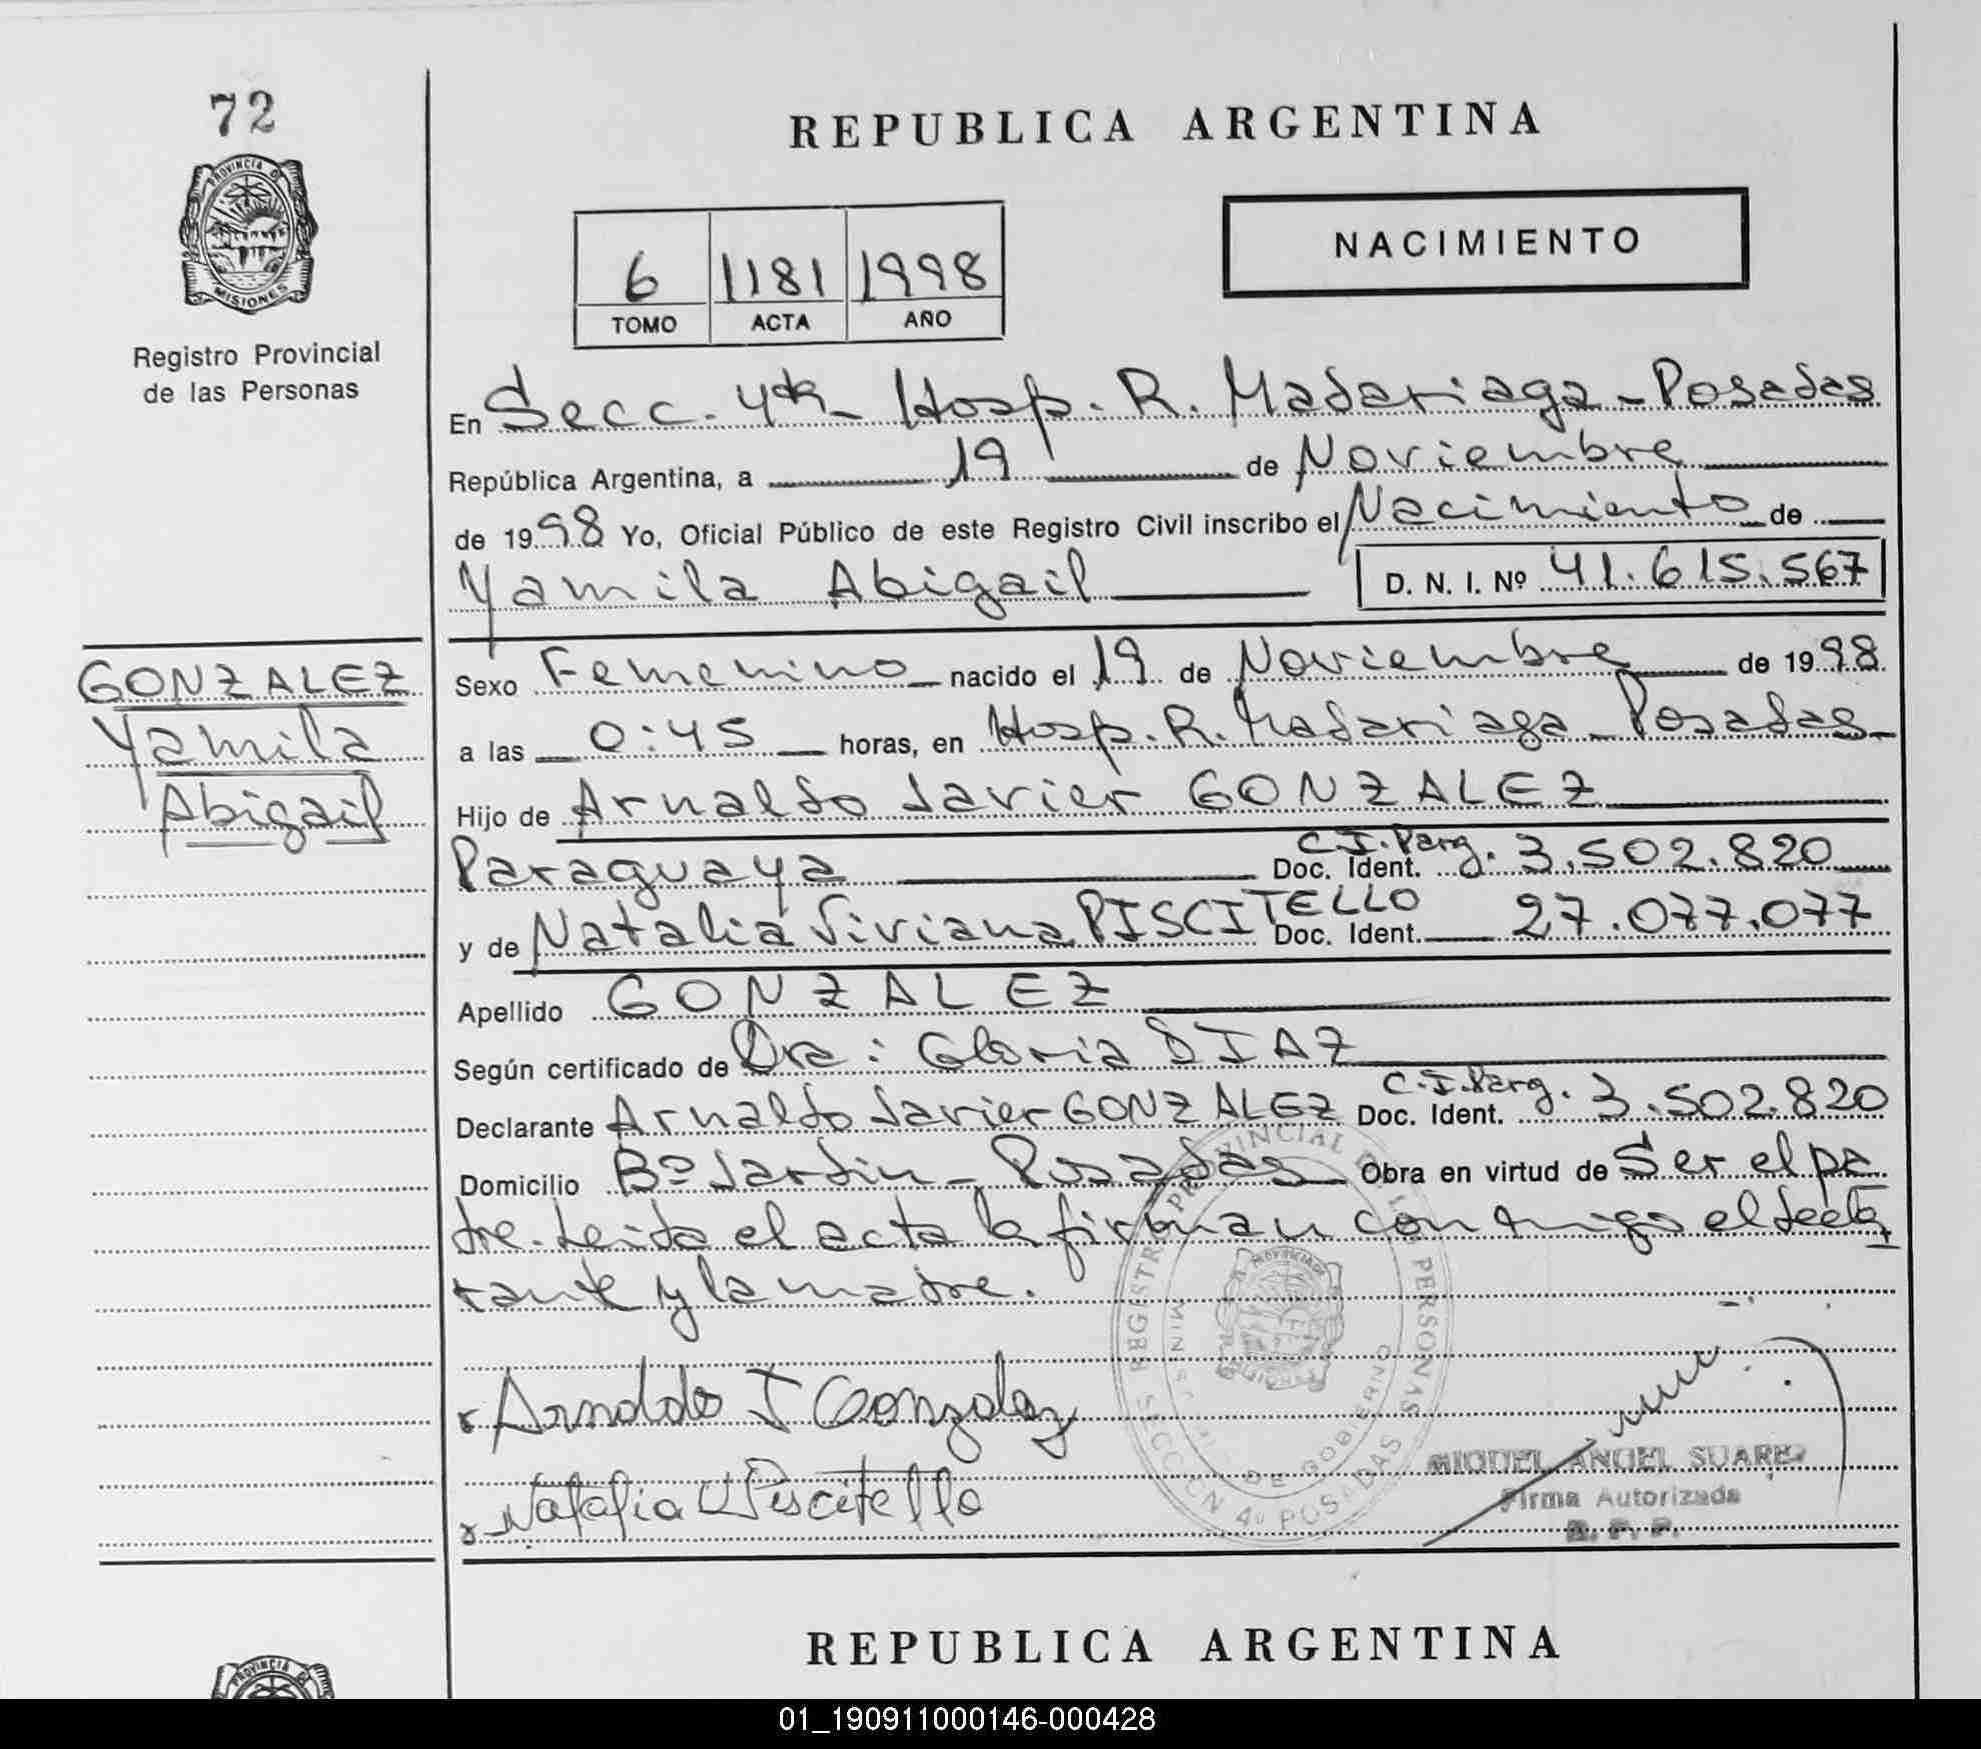 72
PROVINCIA DE
MISIONES
Registro Provincial
de las Personas
REPUBLICA ARGENTINA
NACIMIENTO
6 1181 1998
TOMO ACTA AÑO
En Secc. 4ta Hosp. R. Madariaga - Posadas
República Argentina, a 19 de Noviembre
de 1998 Yo, Oficial Público de este Registro Civil inscribo el Nacimiento de
Yamila Abigail D. N. I. Nº 41.615.567
GONZALEZ
Yamila
Abigail
Sexo Femenino nacido el 19 de Noviembre de 1998
a las 0:45 horas, en Hosp. R. Madariaga - Posadas
Hijo de Arnaldo Javier GONZALEZ
Paraguaya Doc. Ident. C.I. Parg. 3.502.820
y de Natalia Viviana PISCITELLO Doc. Ident. 27.077.077
Apellido GONZALEZ
Según certificado de Dra: Gloria DIAZ
Declarante Arnaldo Javier GONZALEZ Doc. Ident. C.I. Parg. 3.502.820
Domicilio Bº Jardin - Posadas Obra en virtud de Ser el pa
dre. Leida el acta la firman conmigo el decla
rante y la madre.
Arnaldo J Gonzalez
Natalia V Piscitello
REGISTRO PROVINCIAL DE LAS PERSONAS
SECCCN 4º POSADAS
MINIS DE GOBIERNO
MIGUEL ANGEL SUAREZ
Firma Autorizada
R. P. P.
REPUBLICA ARGENTINA
PROVINCIA D
01_190911000146-000428